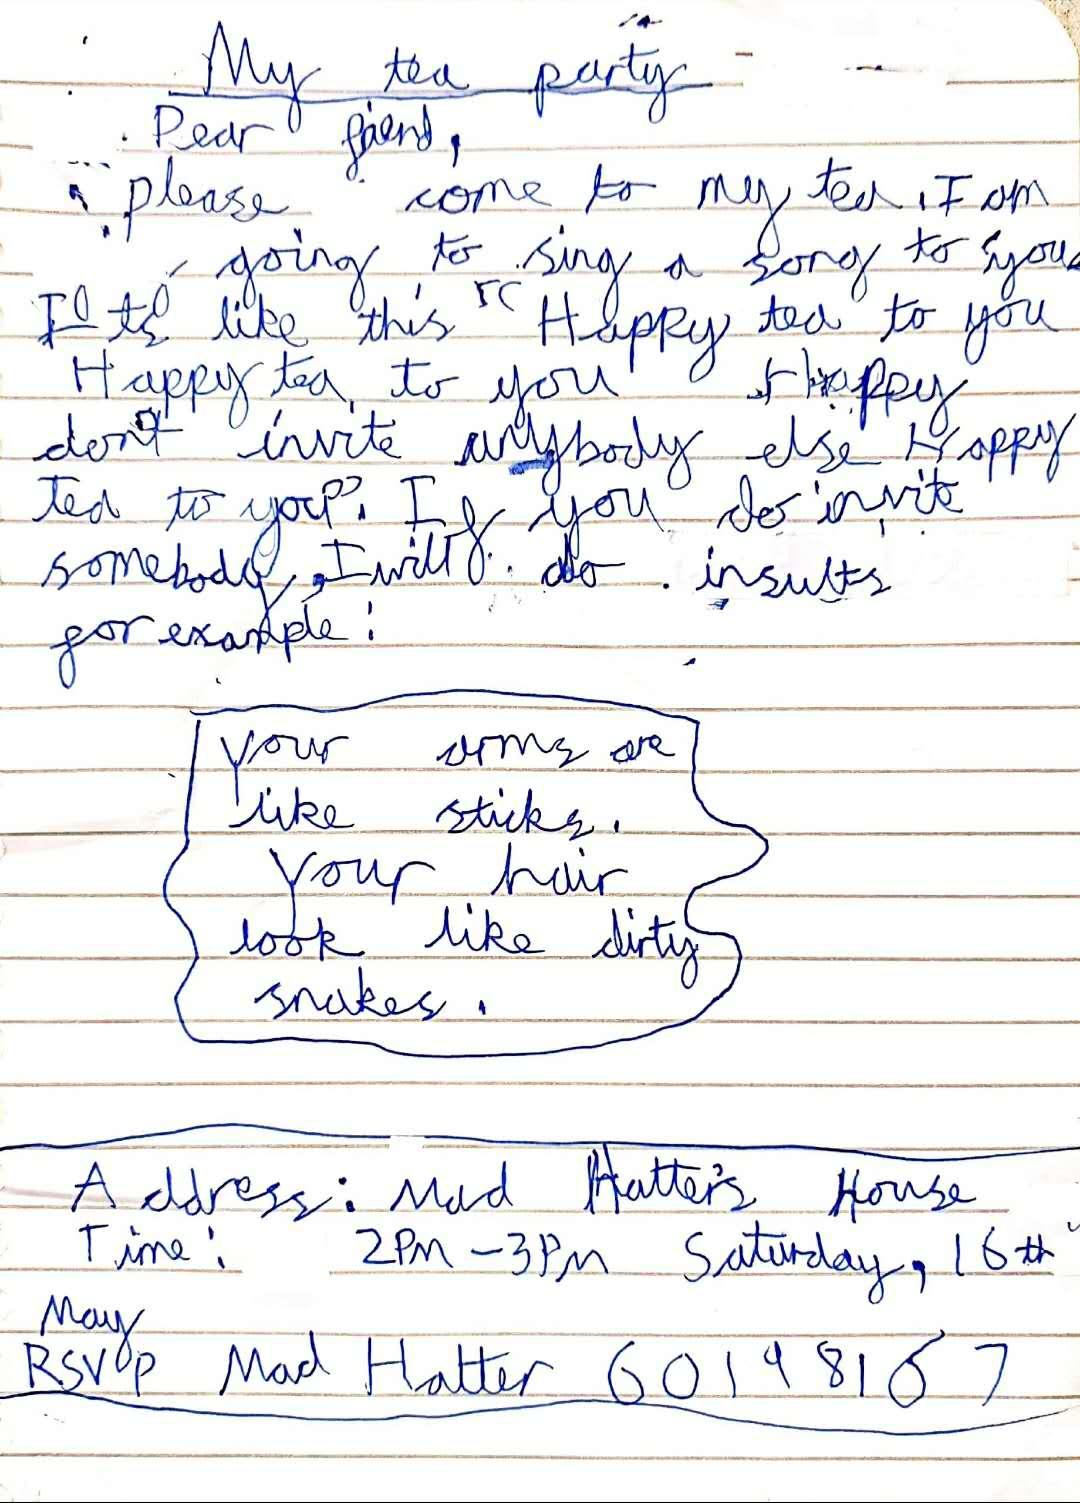 My tea party
Dear friend,
please come to my tea. I am
going to sing a song to you.
It's like this "Happy tea to you
Happy tea to you Happy
don't invite anybody else Happy
Tea to you". If you do invite
somebody, I will do insults
for example:
Your arms are
like sticks.
Your hair
look like dirty
snakes.
Address: Mad Hatter's House
Time: 2PM - 3PM Saturday, 16th
May
RSVP Mad Hatter 60198167